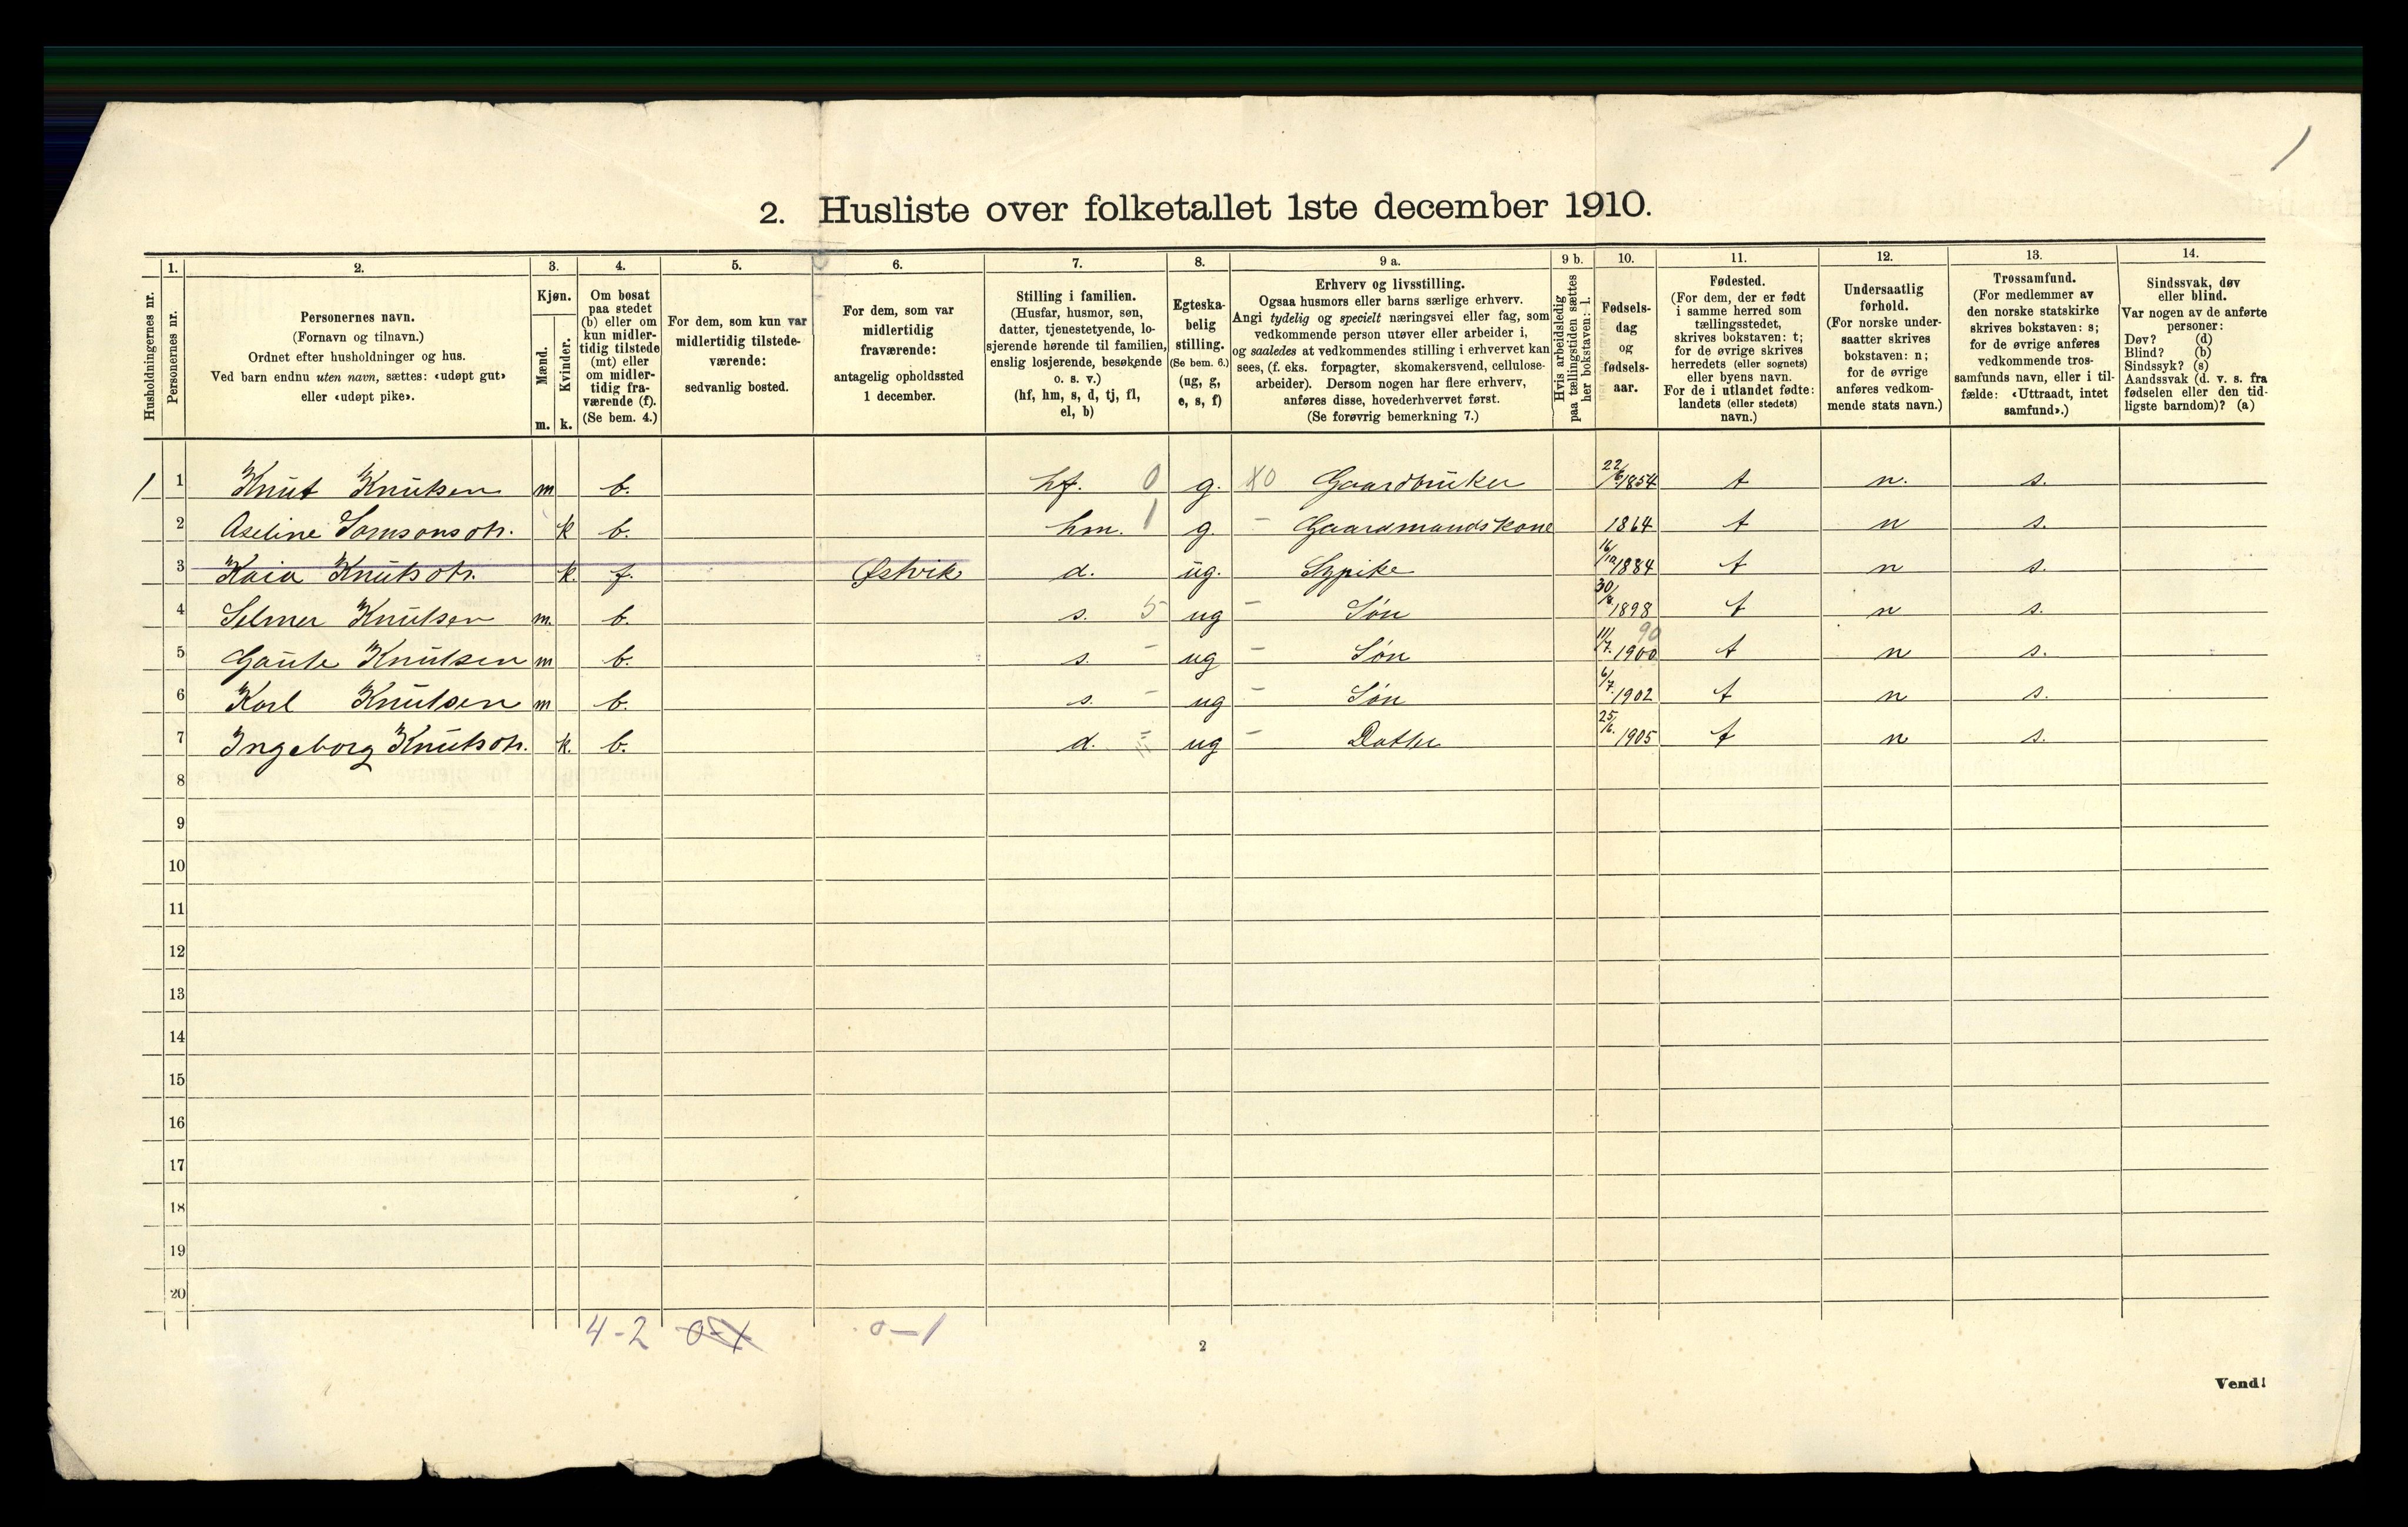 2. Husliste over folketallet 1ste december 1910.
1
Husholdningernes nr.
1. Personernes nr.
2. Personernes navn.
(Fornavn og tilnavn.)
Ordnet efter husholdninger og hus.
Ved barn endnu uten navn, sættes: «udøpt gut»
eller «udøpt pike».
3. Kjøn.
Mænd. Kvinder.
m. k.
4. Om bosat
paa stedet
(b) eller om
kun midler-
tidig tilstede
(mt) eller
om midler-
tidig fra-
værende (f).
(Se bem. 4.)
5. For dem, som kun var
midlertidig tilstede-
værende:
sedvanlig bosted.
6. For dem, som var
midlertidig
fraværende:
antagelig opholdssted
1 december.
7. Stilling i familien.
(Husfar, husmor, søn,
datter, tjenestetyende, lo-
sjerende hørende til familien,
enslig losjerende, besøkende
o. s. v.)
(hf, hm, s, d, tj, fl,
el, b)
8. Egteska-
belig
stilling.
(Se bem. 6.)
(ug, g,
e, s, f)
9 a. Erhverv og livsstilling.
Ogsaa husmors eller barns særlige erhverv.
Angi tydelig og specielt næringsvei eller fag, som
vedkommende person utøver eller arbeider i,
og saaledes at vedkommendes stilling i erhvervet kan
sees, (f. eks. forpagter, skomakersvend, cellulose-
arbeider). Dersom nogen har flere erhverv,
anføres disse, hovederhvervet først.
(Se forøvrig bemerkning 7.)
9 b. Hvis arbeidsledig
paa tællingstiden sættes
her bokstaven: l.
10. Fødsels-
dag
og
fødsels-
aar.
11. Fødested.
(For dem, der er født
i samme herred som
tællingsstedet,
skrives bokstaven: t;
for de øvrige skrives
herredets (eller sognets)
eller byens navn.
For de i utlandet fødte:
landets (eller stedets)
navn.)
12. Undersaatlig
forhold.
(For norske under-
saatter skrives
bokstaven: n;
for de øvrige
anføres vedkom-
mende stats navn.)
13. Trossamfund.
(For medlemmer av
den norske statskirke
skrives bokstaven: s;
for de øvrige anføres
vedkommende tros-
samfunds navn, eller i til-
fælde: «Uttraadt, intet
samfund».)
14. Sindssvak, døv
eller blind.
Var nogen av de anførte
personer:
Døv? (d)
Blind? (b)
Sindssyk? (s)
Aandssvak (d. v. s. fra
fødselen eller den tid-
ligste barndom)? (a)
1 1 Knut Knutsen m b. hf. 0 g. X0 Gaardbruker 1854 t n. s.
2 Aseline Samsonsdtr. k b. hm. 1 g. - Gaardmandskone 1864 t n s.
3 Kaia Knutsdtr. k. f. Østvik d. ug. Sypike 16/12 1884 t n s.
4 Selmer Knutsen m. b. s. 5 ug - Søn 1898 t n s.
5 Gaute Knutsen m b. s. - ug - Søn 11/7. 1900 90 t n s.
6 Karl Knutsen m b. s. - ug - Søn 6/7. 1902 t n s.
7 Ingeborg Knutsdtr. k. b. d. ug - Datter 25/6. 1905 t n s.
8
9
10
11
12
13
14
15
16
17
18
19
20
4-2 0-1
2
Vend!